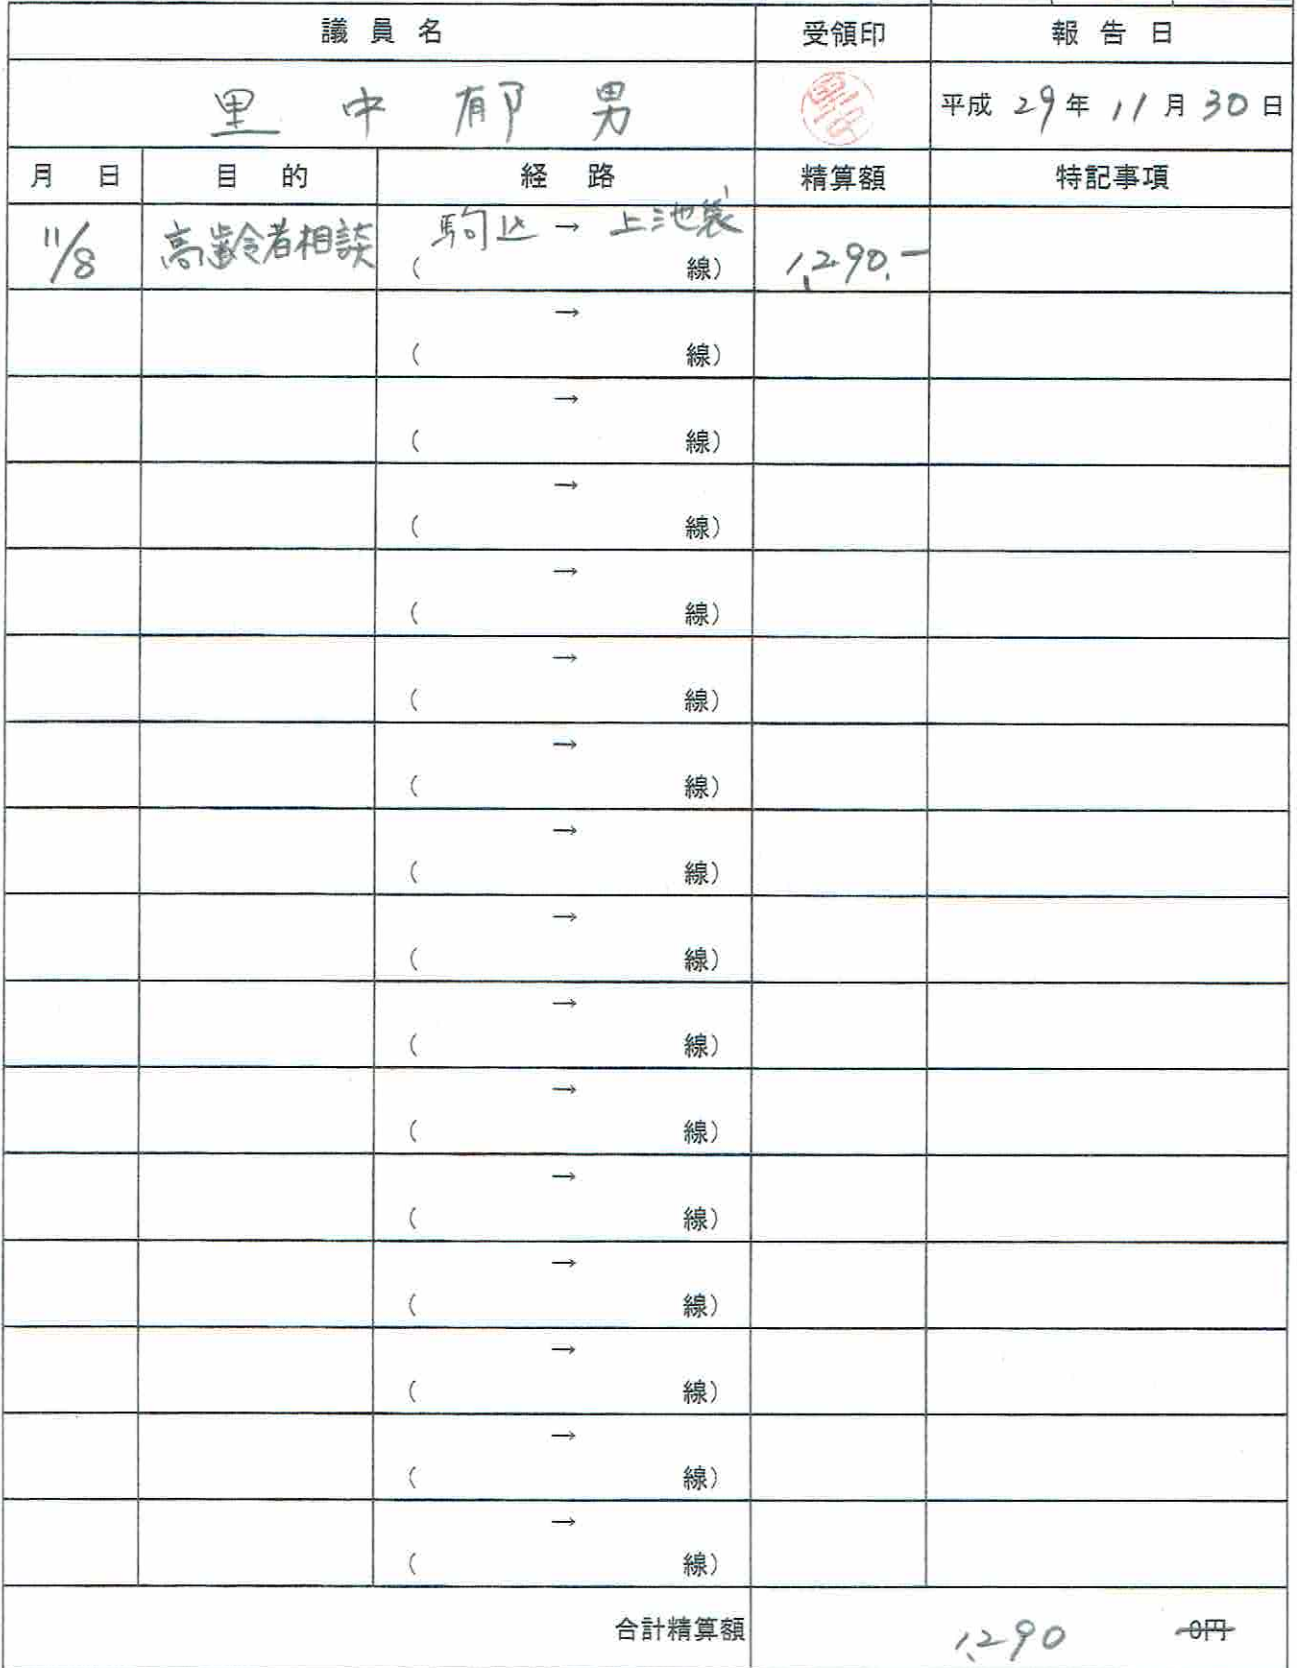 議員名 受領印 報告日
里中郁男 里中 平成29年11月30日
月日 目的 経路 精算額 特記事項
11/8 高齢者相談 駒込 → 上池袋 1,290.-
( 線)
→
( 線)
→
( 線)
→
( 線)
→
( 線)
→
( 線)
→
( 線)
→
( 線)
→
( 線)
→
( 線)
→
( 線)
→
( 線)
→
( 線)
→
( 線)
→
( 線)
→
( 線)
合計精算額 1,290 0円